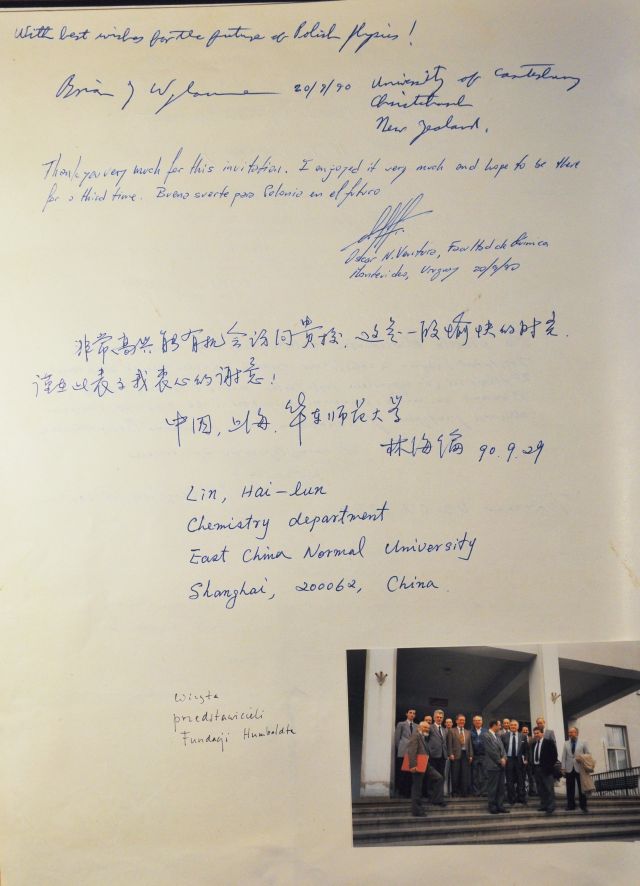 With best wishes for the future of Polish Physics!
Brian J 20/9/90 University of Canterbury
Christchurch
New Zealand.
Thank you very much for this invitation. I enjoyed it very much and hope to be there
for a third time. Buena suerte para Polonia en el futuro
Oscar N. Ventura, Facultad de Química
Montevideo, Uruguay 20/9/90
非常高兴能有机会访问贵校，这是一段愉快的时光．
谨在此表示我衷心的谢意！
中国，上海，华东师范大学
林海伦 90.9.29
Lin, Hai-lun
Chemistry department
East China Normal University
Shanghai, 200062, China.
Wizyta
przedstawicieli
Fundacji Humboldta